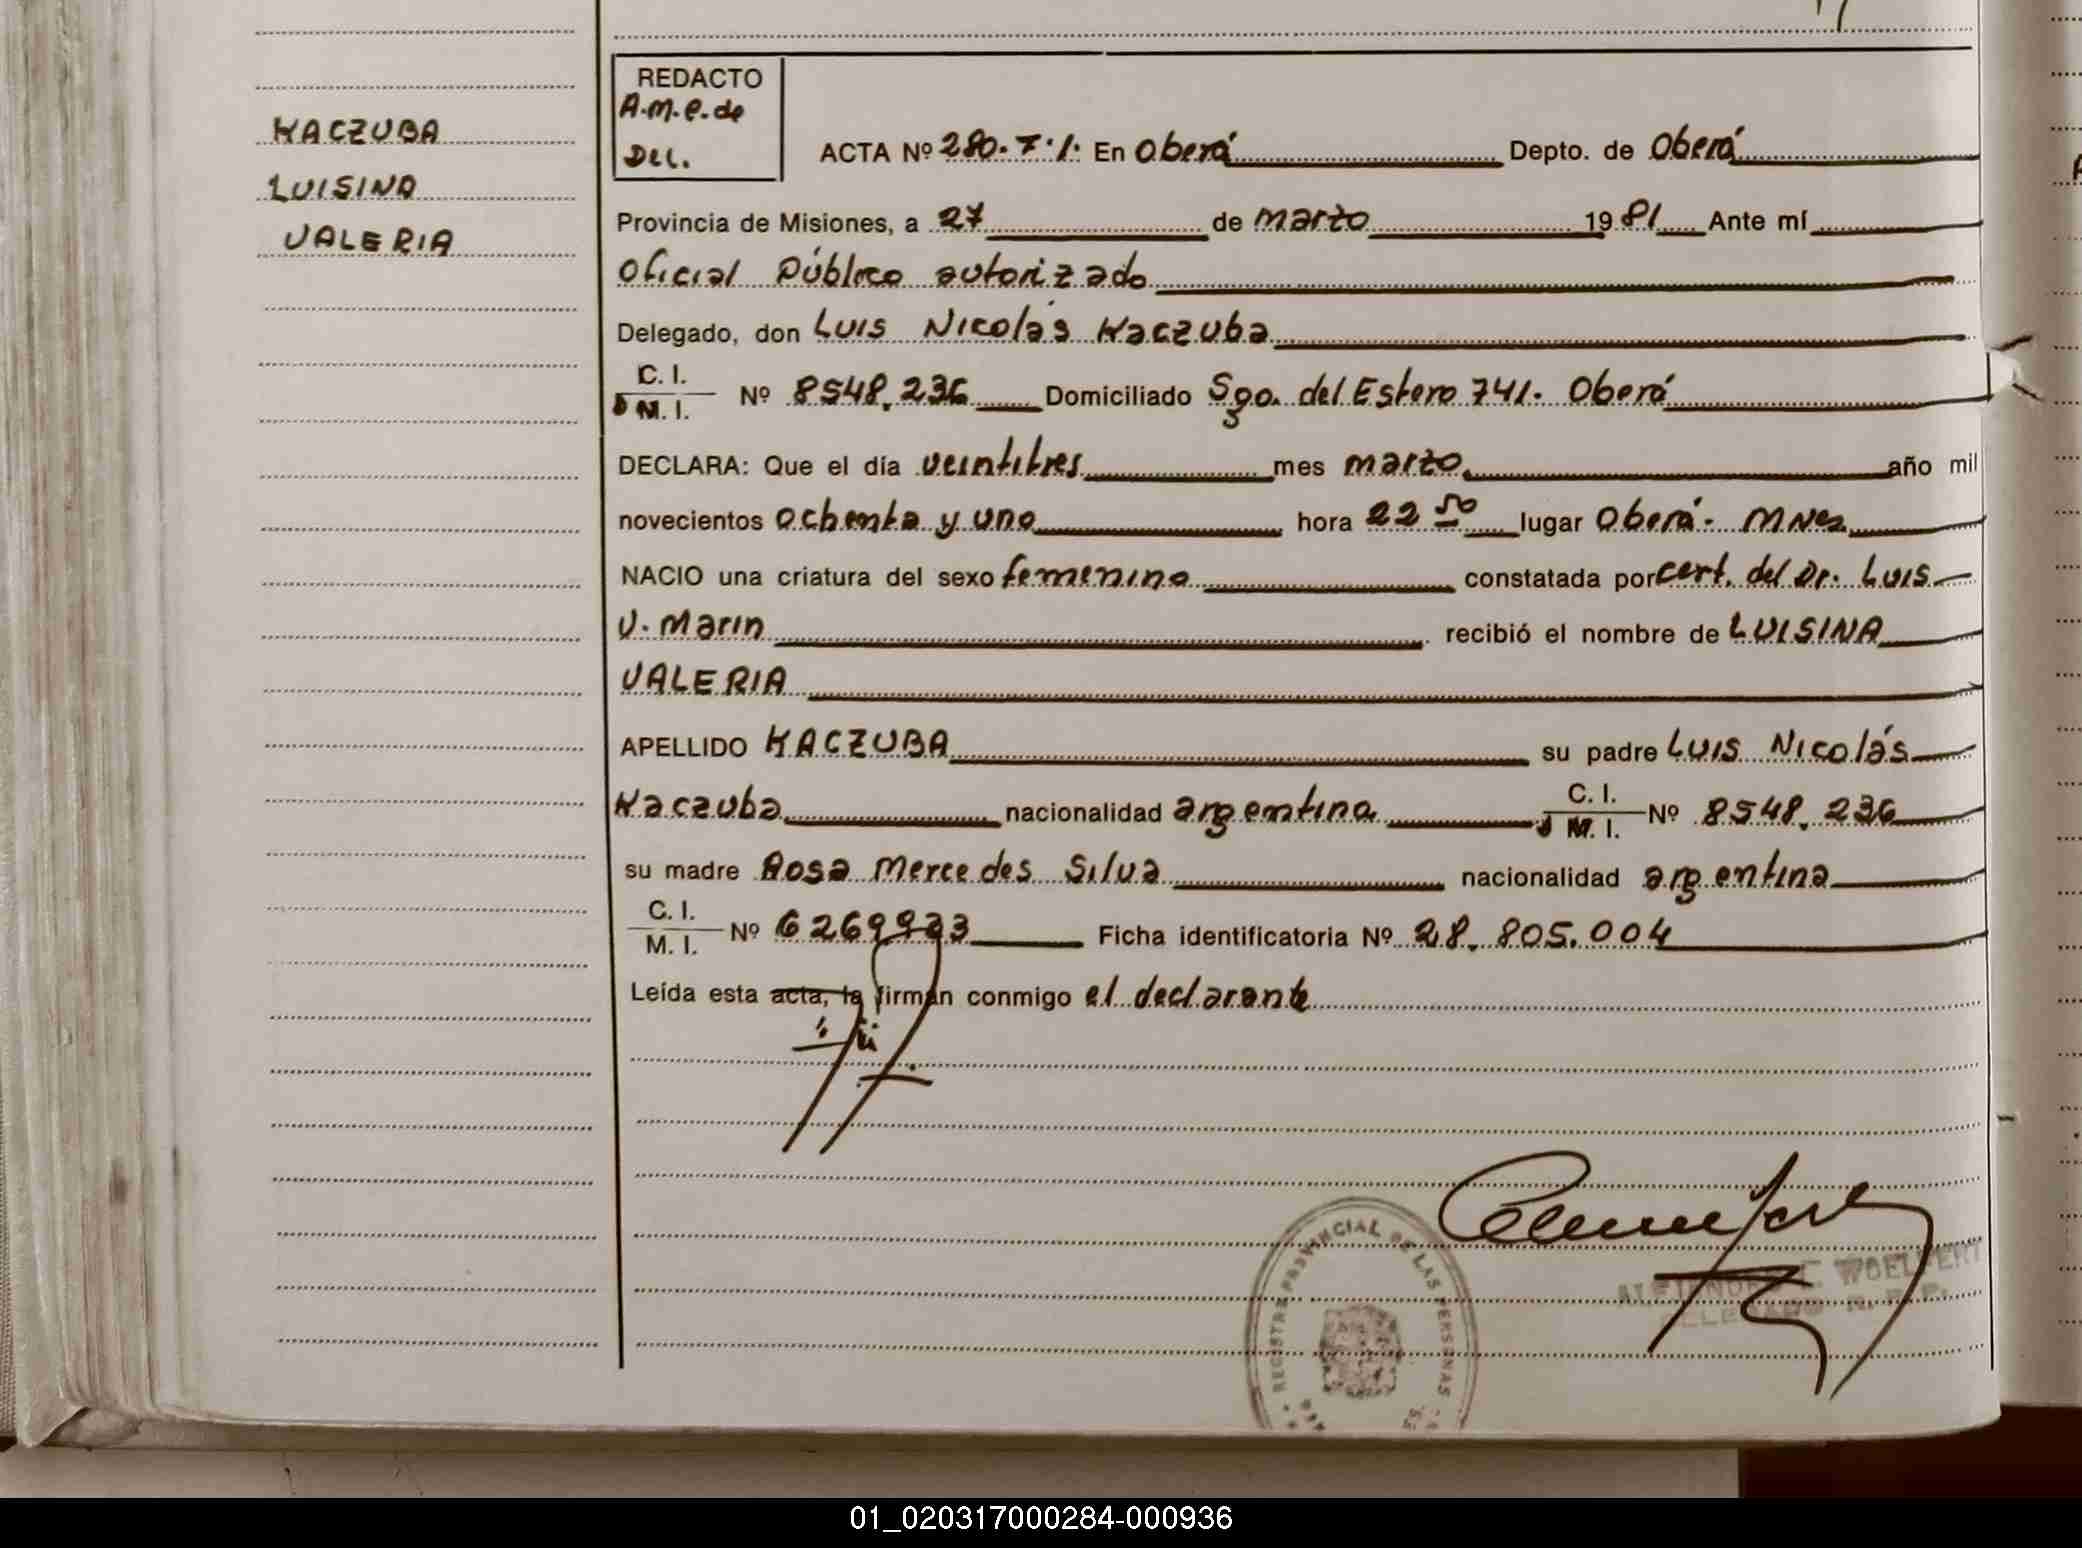 KACZUBA
LUISINA
VALERIA
REDACTO
A.M.e.de
Del.
ACTA Nº 280.7.1. En Oberá Depto. de Oberá
Provincia de Misiones, a 27 de marzo 1981 Ante mí
Oficial Público autorizado
Delegado, don Luis Nicolás Kaczuba
C. I.
M. I.
Nº 8548.236 Domiciliado Sgo. del Estero 741. Oberá
DECLARA: Que el día veintitres mes marzo año mil
novecientos ochenta y uno hora 22 50 lugar Oberá- Mnes
NACIO una criatura del sexo femenino constatada por cert. del Dr. Luis
V. Marin recibió el nombre de LUISINA
VALERIA
APELLIDO KACZUBA su padre Luis Nicolás
Kaczuba nacionalidad argentina C. I. M. I. Nº 8548.236
su madre Rosa Mercedes Silva nacionalidad argentina
C. I.
M. I.
Nº 6269923 Ficha identificatoria Nº 28.805.004
Leída esta acta, la firman conmigo el declarante
REGISTRO PROVINCIAL DE LAS PERSONAS
WOELFERT
DELEGADO R. P. P.
01_020317000284-000936